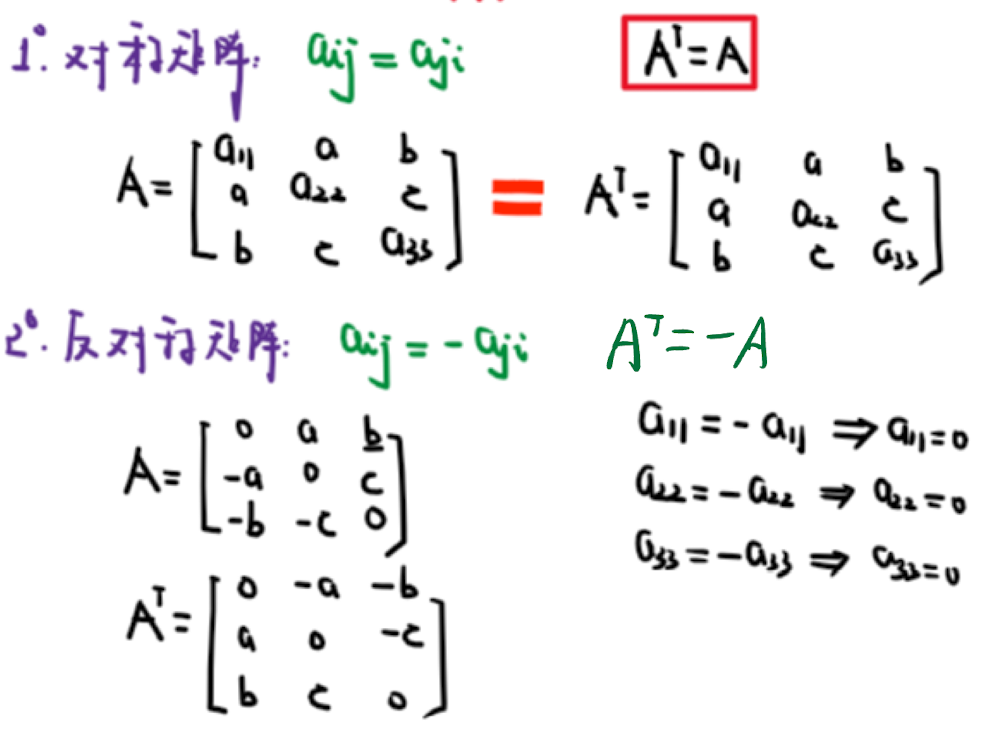 1°. 对称矩阵: aij = aji    Aᵀ = A
A = [ a11 a b ; a a22 c ; b c a33 ] = Aᵀ = [ a11 a b ; a a22 c ; b c a33 ]
2°. 反对称矩阵: aij = - aji    Aᵀ = -A
A = [ 0 a b ; -a 0 c ; -b -c 0 ]
Aᵀ = [ 0 -a -b ; a 0 -c ; b c 0 ]
a11 = - a11 ⇒ a11 = 0
a22 = - a22 ⇒ a22 = 0
a33 = - a33 ⇒ a33 = 0